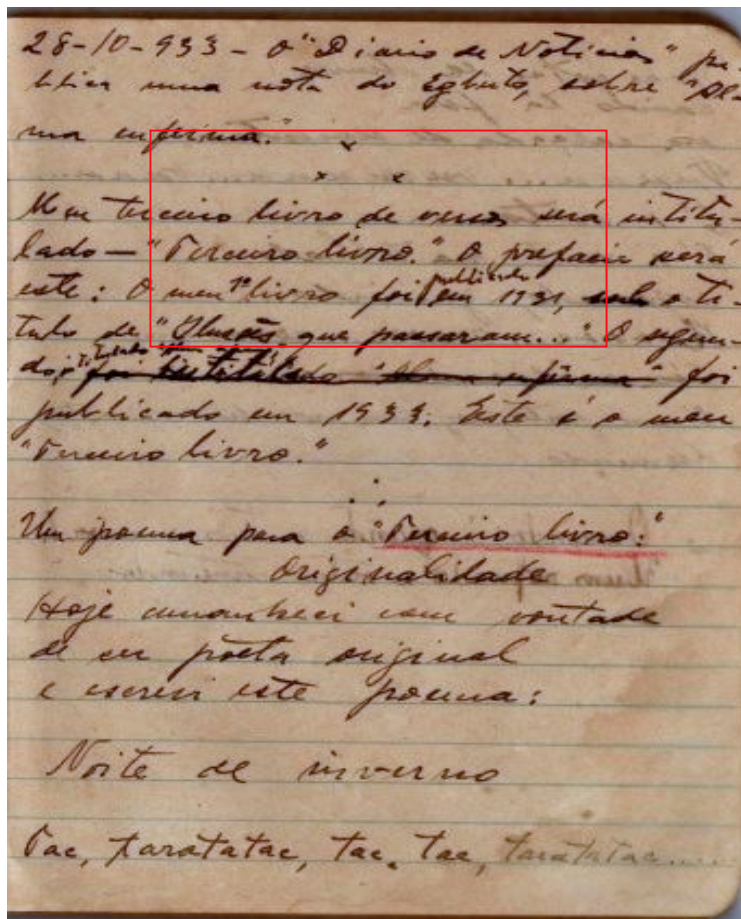 28-10-933 - O "Diario de Noticias" pu-
blica uma nota do Egberto, sobre "Al-
ma enferma."
x
x x
Meu terceiro livro de versos será intitu-
lado — "Terceiro livro." O prefacio será
este: O meu 1º livro foi publicado em 1931, sob o ti-
tulo de "Illusões que passaram..." O segun-
do, foi intitulado "Alma enferma" foi
publicado em 1933. Este é o meu
"Terceiro livro."
Um poema para o "Terceiro livro:"
Originalidade
Hoje amanheci com vontade
de ser poeta original
e escrevi este poema:
Noite de inverno
Tac, taratatac, tac, tac, taratatac....